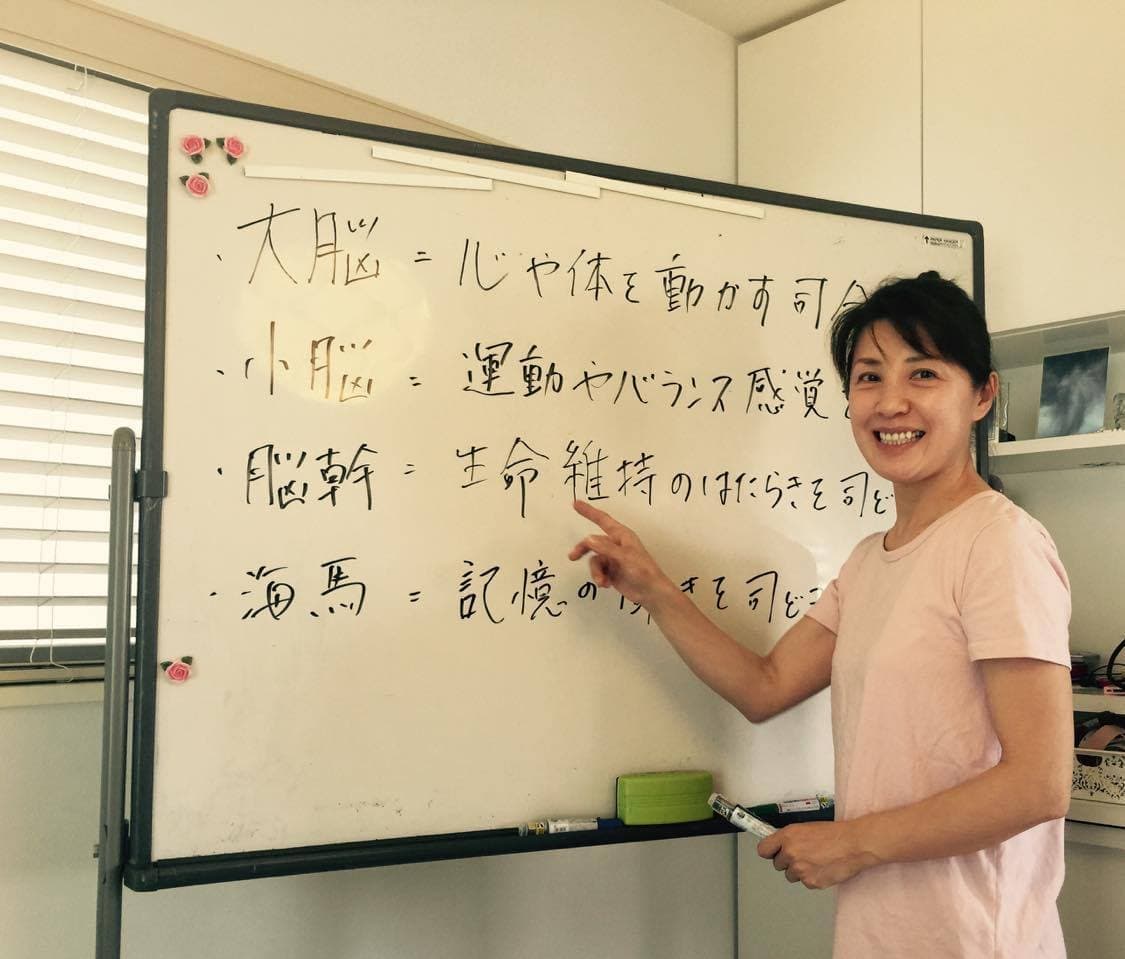 ・大脳 = 心や体を動かす司令
・小脳 = 運動やバランス感覚
・脳幹 = 生命維持のはたらきを司ど
・海馬 = 記憶の きを司どる